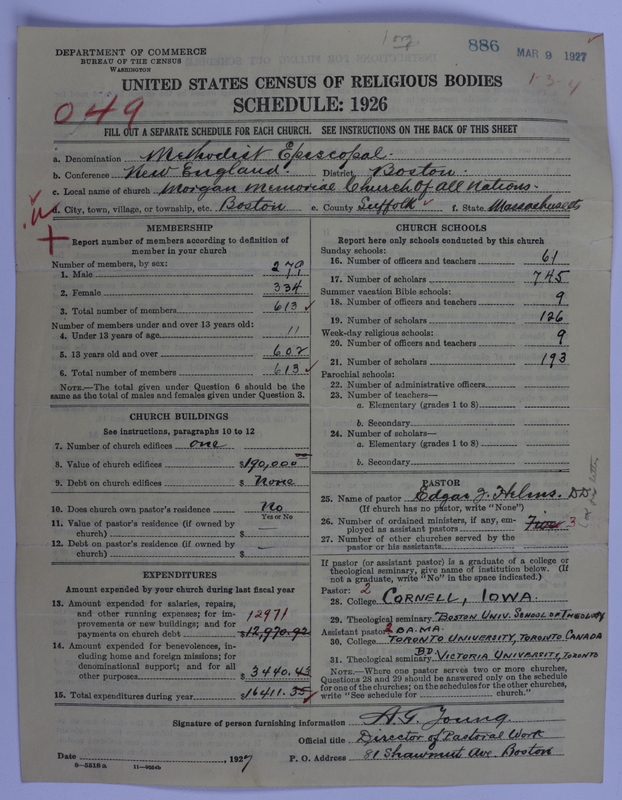 1 org.
886
MAR 9 1927
DEPARTMENT OF COMMERCE
BUREAU OF THE CENSUS
WASHINGTON
1-3-4
UNITED STATES CENSUS OF RELIGIOUS BODIES
SCHEDULE: 1926
049
FILL OUT A SEPARATE SCHEDULE FOR EACH CHURCH. SEE INSTRUCTIONS ON THE BACK OF THIS SHEET
a. Denomination Methodist Episcopal.
b. Conference New England. District Boston.
c. Local name of church Morgan Memorial Church of All Nations.
d. City, town, village, or township, etc. Boston e. County Suffolk f. State Massachusetts
MEMBERSHIP
Report number of members according to definition of
member in your church
Number of members, by sex:
1. Male 279
2. Female 334
3. Total number of members 613
Number of members under and over 13 years old:
4. Under 13 years of age 11
5. 13 years old and over 602
6. Total number of members 613
NOTE.—The total given under Question 6 should be the
same as the total of males and females given under Question 3.
CHURCH BUILDINGS
See instructions, paragraphs 10 to 12
7. Number of church edifices one
8. Value of church edifices $190,000
9. Debt on church edifices $ None
10. Does church own pastor's residence No
Yes or No
11. Value of pastor's residence (if owned by
church) $
12. Debt on pastor's residence (if owned by
church) $
EXPENDITURES
Amount expended by your church during last fiscal year
13. Amount expended for salaries, repairs,
and other running expenses; for im-
provements or new buildings; and for 12971
payments on church debt $12,970.92
14. Amount expended for benevolences, in-
cluding home and foreign missions; for
denominational support; and for all
other purposes $3440.43
15. Total expenditures during year $16411.35
CHURCH SCHOOLS
Report here only schools conducted by this church
Sunday schools:
16. Number of officers and teachers 61
17. Number of scholars 745
Summer vacation Bible schools:
18. Number of officers and teachers 9
19. Number of scholars 126
Week-day religious schools:
20. Number of officers and teachers 9
21. Number of scholars 193
Parochial schools:
22. Number of administrative officers
23. Number of teachers—
a. Elementary (grades 1 to 8)
b. Secondary
24. Number of scholars—
a. Elementary (grades 1 to 8)
b. Secondary
PASTOR
25. Name of pastor Edgar J. Helms. DD
(If church has no pastor, write "None")
26. Number of ordained ministers, if any, em-
ployed as assistant pastors 3
27. Number of other churches served by the
pastor or his assistants
If pastor (or assistant pastor) is a graduate of a college or
theological seminary, give name of institution below. (If
not a graduate, write "No" in the space indicated.)
Pastor: 2
28. College CORNELL, IOWA.
29. Theological seminary BOSTON UNIV. SCHOOL OF THEOLOGY
Assistant pastor: 2 BA. MA.
30. College TORONTO UNIVERSITY, TORONTO CANADA
BD.
31. Theological seminary VICTORIA UNIVERSITY, TORONTO
NOTE.—Where one pastor serves two or more churches,
Questions 28 and 29 should be answered only on the schedule
for one of the churches; on the schedules for the other churches,
write "See schedule for church."
Signature of person furnishing information A.G. Young.
Official title Director of Pastoral Work
Date , 1927 P. O. Address 81 Shawmut Ave. Boston